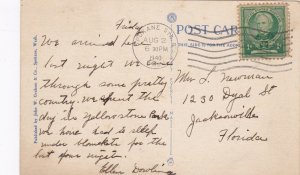 Friday
We arrived here
last night we came
through some pretty
country. We spent the
day in Yellowstone Park
we have had to sleep
under blankets for the
last four nights.
Ellen Dowling
Published by John W. Graham & Co., Spokane, Wash.
SPOKANE
AUG 2
6 30PM
1940
POST CARD
Mrs L. Newman
1230 Dyal St
Jacksonville
Florida